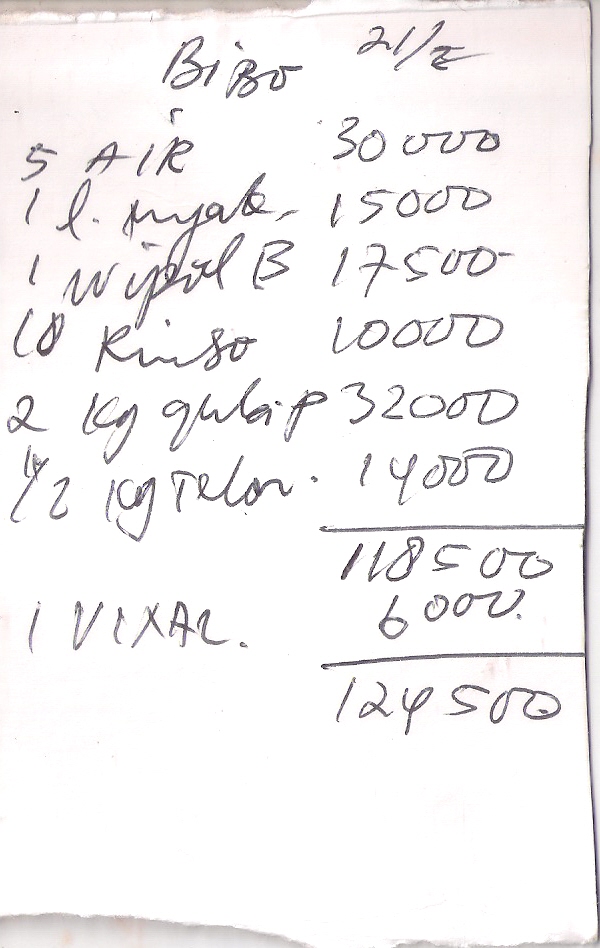 BiBo 21/2
5 AIR 30000
1 l. myak. 15000
1 Wipol B 17500
18 Rinso 10000
2 kg gula P 32000
1/2 kg Telor. 14000
118500
1 VIXAL. 6000.
124500